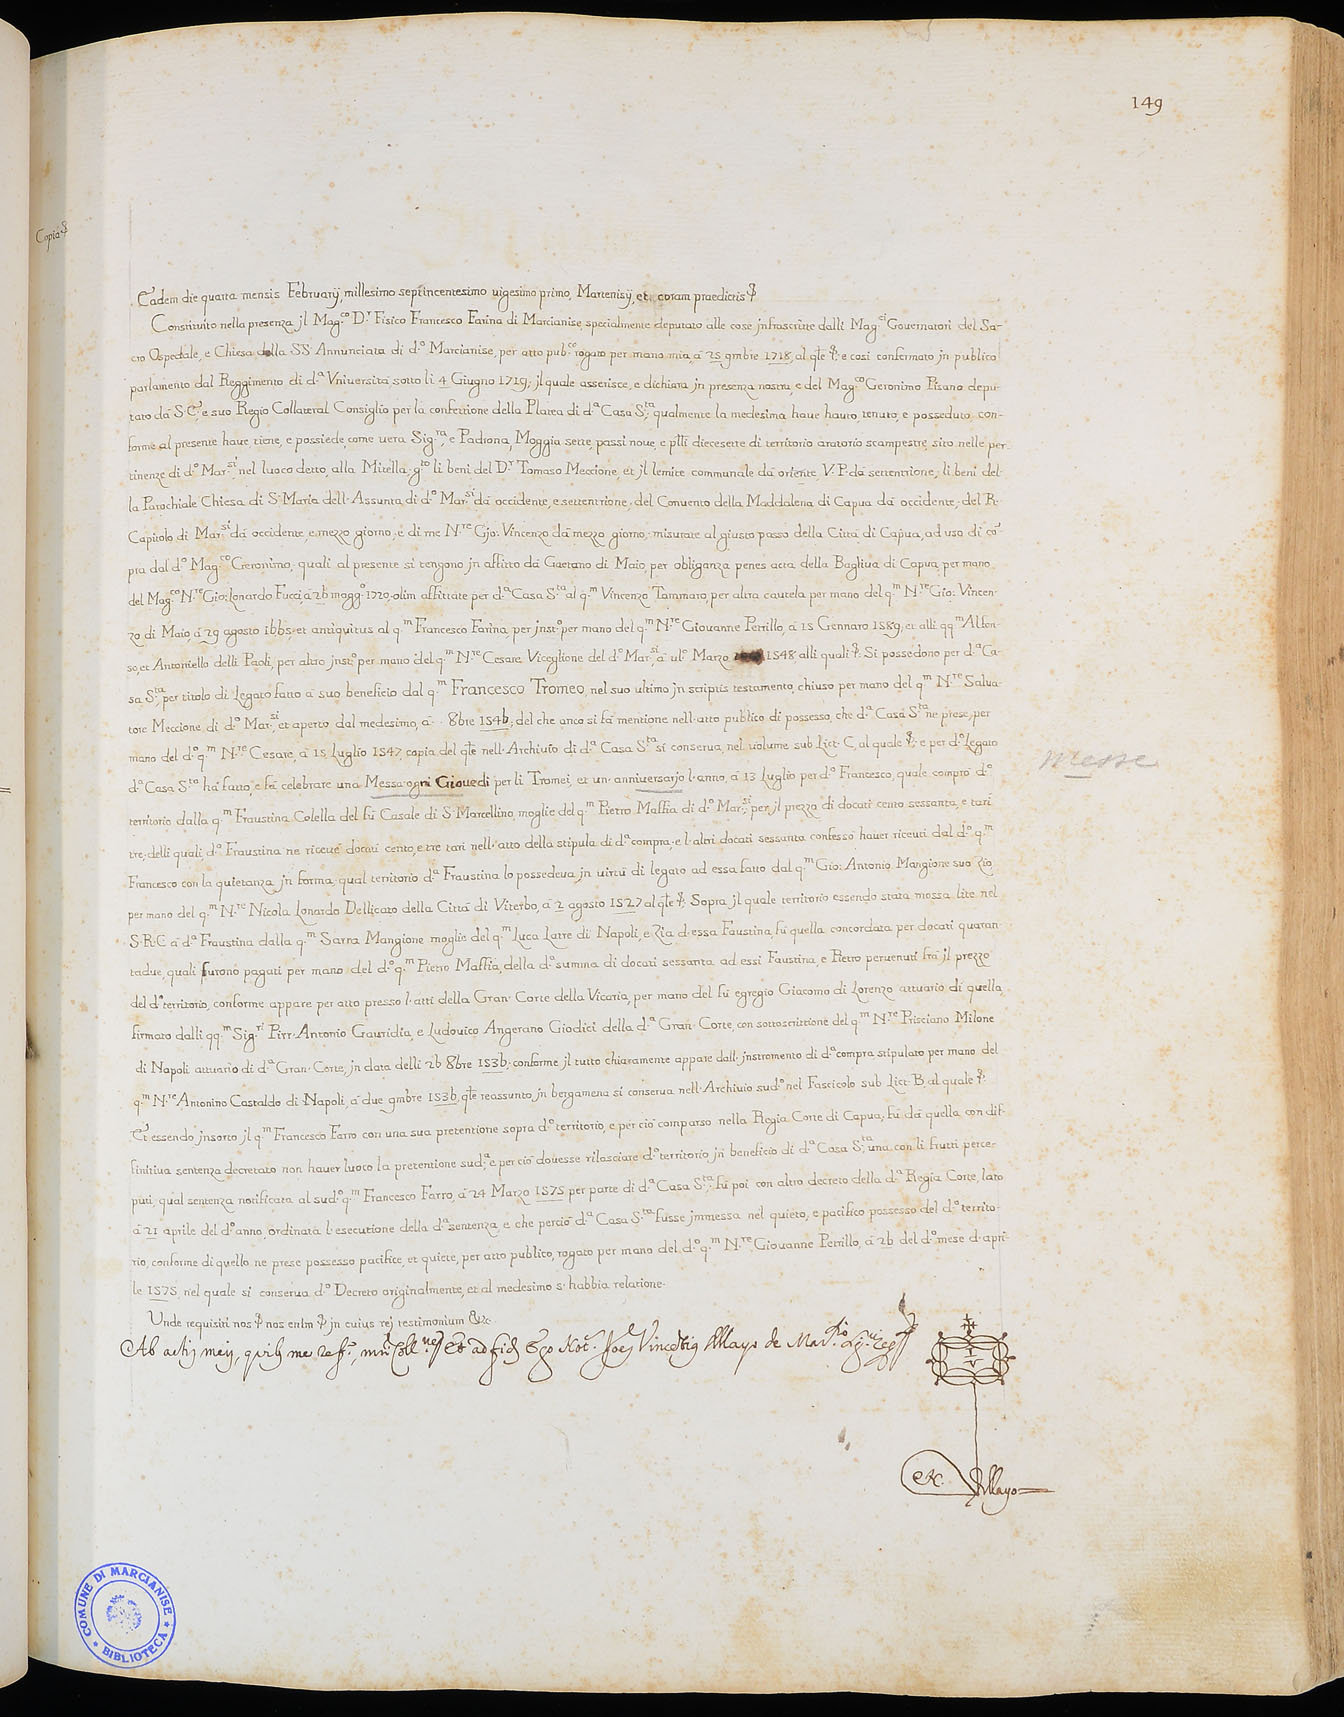 149
Copia
Eadem die quarta mensis Februarij, millesimo septincentesimo uigesimo primo, Martenisij, et coram praedictis
Constituito nella presenza jl Mag.co D.r Fisico Francesco Farina di Marcianise, specialmente deputato alle cose jnfrascritte dalli Mag.ci Gouernatori del Sa-
cro Ospedale, e Chiesa della SS. Annunciata di d.o Marcianise, per atto pub.co rogato per mano mia, à 25 9mbre 1718, al qle &: e cosi confermato jn publico
parlamento dal Reggimento di d.a Vniuersità sotto li 4 Giugno 1719; jl quale asserisce, e dichiara jn presenza nostra, e del Mag.co Geronimo Pisano depu-
tato dà S.E. e suo Regio Collateral Consiglio per la confettione della Platea di d.a Casa S.ta, qualmente la medesima haue hauto, tenuto, e posseduto con-
forme al presente haue, tiene, e possiede, come uera Sig.ra, e Padrona, Moggia sette, passi noue, e p̃lli diecesette di territorio aratorio scampestre, sito nelle per-
tinenze di d.o Mar.si, nel luoco detto, alla Mitella, g.to li beni del D.r Tomaso Meccione, et jl lemite communale dà oriente, V.P. dà settentrione, li beni del-
la Parochiale Chiesa di S. Maria dell'Assunta di d.o Mar.si dà occidente, e settentrione, del Conuento della Maddalena di Capua dà occidente, del R.
Capitolo di Mar.si dà occidente, e mezzo giorno, e di me N.re Gjo: Vincenzo dà mezzo giorno, misurate al giusto passo della Città di Capua, ad uso di cõ-
pra dal d.o Mag.co Geronimo, quali al presente si tengono jn affitto dà Gaetano di Maio, per obliganza penes acta della Bagliua di Capua, per mano
del Mag.co N.re Gio: Lonardo Fucci, à 26 magg.o 1720, olim affittate per d.a Casa S.ta al q.m Vincenzo Tammaro, per altra cautela per mano del q.m N.re Gio: Vincen-
zo di Maio, à 29 agosto 1665, et antiquitus al q.m Francesco Farina, per jnst.o per mano del q.m N.re Giouanne Petrillo, à 15 Gennaro 1589, et alli qq.m Alfon-
so, et Antoniello delli Paoli, per altro jnst.o per mano del q.m N.re Cesare Viceglione del d.o Mar.si, à ul.o Marzo 1548, alli quali &: Si possedono per d.a Ca-
sa S.ta, per titolo di Legato fatto à suo beneficio dal q.m Francesco Tromeo, nel suo ultimo jn scriptis testamento, chiuso per mano del q.m N.re Salua-
tore Meccione di d.o Mar.si, et aperto dal medesimo, à 8bre 1546; del che anco si fà mentione nell'atto publico di possesso, che d.a Casa S.ta ne prese, per
mano del d.o q.m N.re Cesare, à 15 Luglio 1547, copia del qle nell'Archiuio di d.a Casa S.ta si conserua, nel uolume sub Litt. C, al quale &: e per d.o Legato
d.a Casa S.ta hà fatto, e fà celebrare una Messa ogni Giouedi per li Tromei, et un anniuersarjo l'anno, à 13 Luglio per d.o Francesco, quale comprò d.o
messe
territorio dalla q.m Fraustina Colella del fù Casale di S. Marcellino, moglie del q.m Pietro Maffia di d.o Mar.si, per jl prezzo di docati cento sessanta, e tarì
tre, delli quali, d.a Fraustina ne riceuè docati cento, e tre tarì nell'atto della stipula di d.a compra, e l'altri docati sessanta confessò hauer riceuti dal d.o q.m
Francesco con la quietanza jn forma, qual territorio d.a Fraustina lo possedeua jn uirtù di legato ad essa fatto dal q.m Gio: Antonio Mangione suo Zio,
per mano del q.m N.re Nicola Lonardo Dellicato della Città di Viterbo, à 2 agosto 1527 al qle &: Sopra jl quale territorio essendo stata mossa lite nel
S.R.C. à d.a Fraustina dalla q.m Sarra Mangione moglie del q.m Luca Latre di Napoli, e Zia d'essa Faustina, fù quella concordata per docati quaran-
tadue, quali furono pagati per mano del d.o q.m Pietro Maffia, della d.a summa di docati sessanta ad essi Faustina, e Pietro peruenuti frà jl prezzo
del d.o territorio, conforme appare per atto presso l'atti della Gran Corte della Vicaria, per mano del fù egregio Giacomo di Lorenzo attuario di quella,
firmato dalli qq.m Sig.ri Pirr'Antonio Gauridia, e Ludouico Angerano Giodici della d.a Gran Corte, con sottoscrittione del q.m N.re Prisciano Milone
di Napoli attuario di d.a Gran Corte, jn data delli 26 8bre 1536, conforme jl tutto chiaramente appare dall'jnstromento di d.a compra stipulato per mano del
q.m N.re Antonino Castaldo di Napoli, à due 9mbre 1536, qle reassunto, jn bergamena si conserua nell'Archiuio sud.o nel Fascicolo sub Litt. B. al quale &:
Et essendo jnsorto jl q.m Francesco Farro con una sua pretentione sopra d.o territorio, e per ciò comparso nella Regia Corte di Capua, fù dà quella con dif-
finitiua sentenza decretato non hauer luoco la pretentione sud.a, e per ciò douesse rilasciare d.o territorio jn beneficio di d.a Casa S.ta, una con li frutti perce-
puti, qual sentenza notificata al sud.o q.m Francesco Farro, à 24 Marzo 1575 per parte di d.a Casa S.ta, fù poi con altro decreto della d.a Regia Corte, lato
à 21 aprile del d.o anno, ordinata l'esecutione della d.a sentenza, e che perciò d.a Casa S.ta fusse jmmessa nel quieto, e pacifico possesso del d.o territo-
rio, conforme di quello ne prese possesso pacifice, et quiete, per atto publico, rogato per mano del d.o q.m N.re Giouanne Petrillo, à 26 del d.o mese d'apri-
le 1575, nel quale si conserua d.o Decreto originalmente, et al medesimo s'habbia relatione.
Unde requisiti nos & nos enim & jn cuius rej testimonium &c.
Ab actis meis, quibus me ref.o, et ad fidem Ego Not.s Joes Vincentius Mayo de Mar.sio
Mayo
COMUNE DI MARCIANISE * BIBLIOTECA *